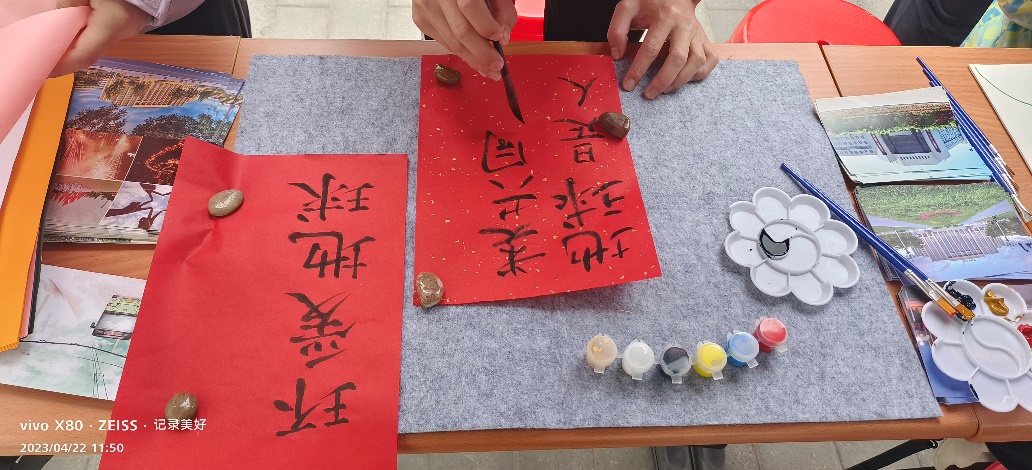 珍爱地球
地球是人
类共同
vivo X80 · ZEISS · 记录美好
2023/04/22 11:50